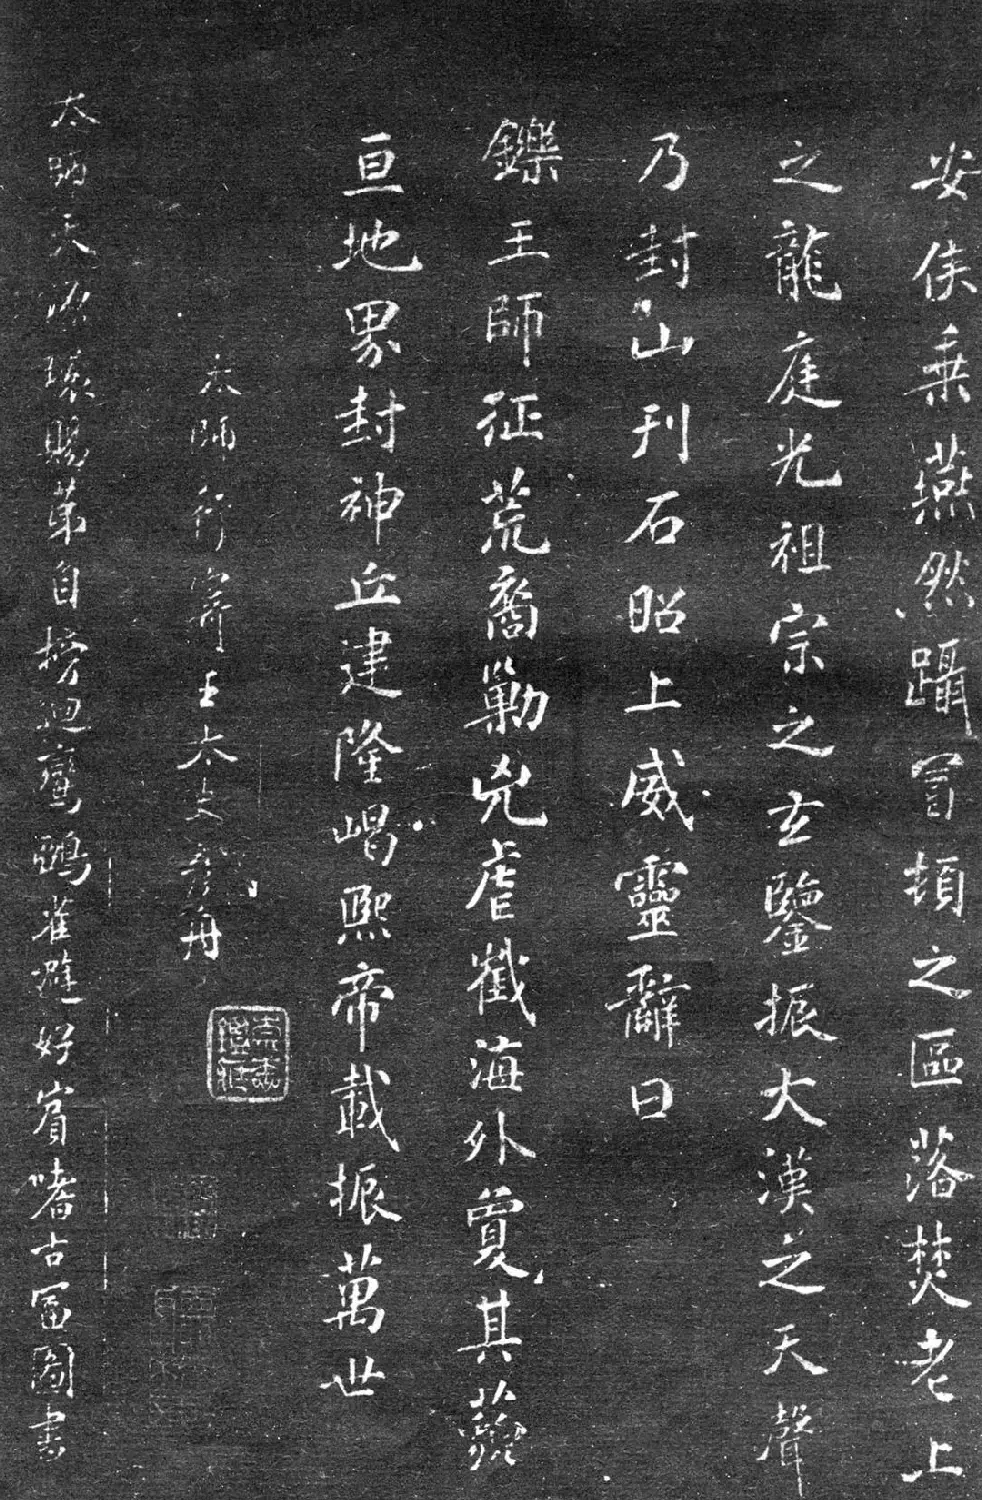 安侯乗燕然躡冒頓之區落焚老上
之龍庭光祖宗之玄鑒振大漢之天聲
乃封山刊石昭上威靈辭曰
鑠王師征荒裔勦兇虐截海外敻其藐
亘地界封神丘建隆嵑熙帝載振萬世
太師行寄王太史彥舟
太師天水環賜第自榜迴鸞鵲雀避好賓嗜古富圖書